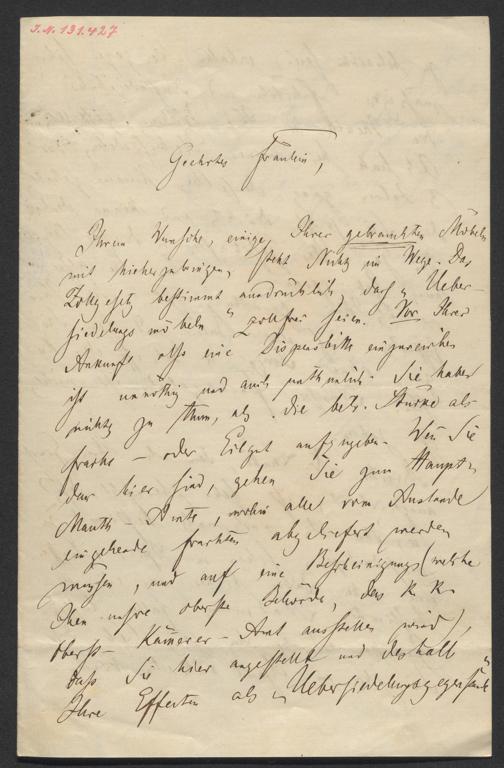 J.N. 131.427
Geehrtes Fräulein,
Ihrem Wunsche, einige Ihrer gebrauchten Möbeln
mit hieherzubringen, steht Nichts im Wege. Das
Zollgesetz bestimmt ausdrücklich daß „Ueber-
siedelungsmöbeln" zollfrei seien. Vor Ihrer
Ankunft also eine Dispensbitte einzureichen
ist unnöthig und auch unthunlich. Sie haben
nichts zu thun, als die betr. Stücke als
Fracht- oder Eilgut aufzugeben. Wenn Sie
dan hier sind, gehen Sie zum Haupt-
Mauth-Amte, wohin alle vom Auslande
eingehende Frachten abgeliefert werden
müssen, und auf eine Bescheinigung (welche
Ihnen unsre oberste Behörde, das K. K.
Oberst-Kämerer-Amt ausstellen wird),
daß Sie hier angestellt und deshalb
Ihre Effecten als „Uebersiedelungsgegenstände"